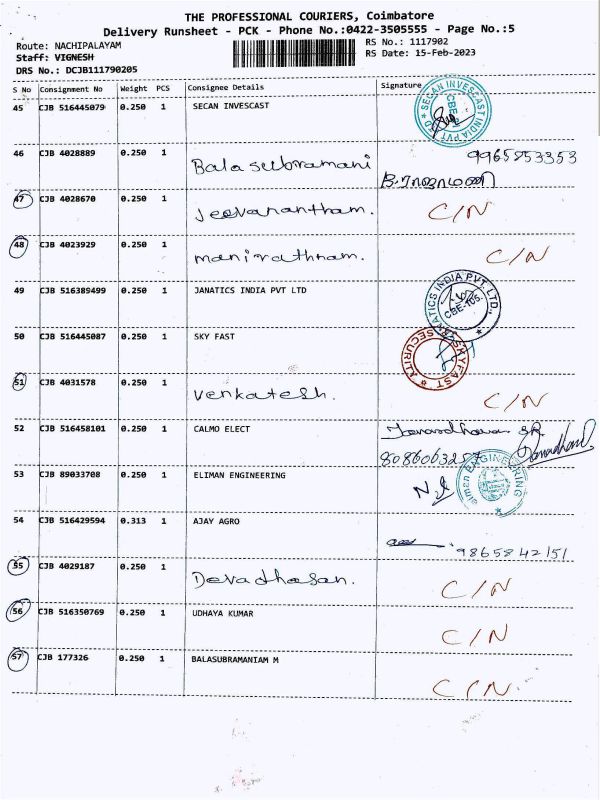 THE PROFESSIONAL COURIERS, Coimbatore
Delivery Runsheet - PCK - Phone No.:0422-3505555 - Page No.:5
Route: NACHIPALAYAM
RS No.: 1117902
Staff: VIGNESH
RS Date: 15-Feb-2023
DRS No.: DCJB111790205
S No Consignment No Weight PCS Consignee Details Signature
45 CJB 516445079 0.250 1 SECAN INVESCAST
SECAN INVESCAST INDIA PVT LTD
CBE
46 CJB 4028889 0.250 1 Balasubramani 9965853353
47 CJB 4028670 0.250 1 Jeevanantham. C/N
48 CJB 4023929 0.250 1 manirathnam. C/N
49 CJB 516389499 0.250 1 JANATICS INDIA PVT LTD
JANATICS INDIA PVT. LTD.,
50 CJB 516445087 0.250 1 SKY FAST
SKYFAST SECURITY
51 CJB 4031578 0.250 1 Venkatesh. C/N
52 CJB 516458101 0.250 1 CALMO ELECT
53 CJB 89033708 0.250 1 ELIMAN ENGINEERING
ENGINEERING
54 CJB 516429594 0.313 1 AJAY AGRO
9865842151
55 CJB 4029187 0.250 1 Devadhasan. C/N
56 CJB 516350769 0.250 1 UDHAYA KUMAR C/N
57 CJB 177326 0.250 1 BALASUBRAMANIAM M C/N.